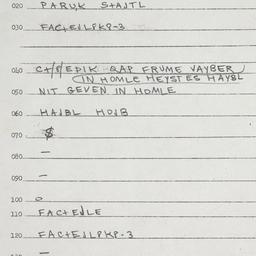 020 PARUK STAJTL
030 FACTEJLPKP-3
040 C+/P/EDIK GAP FRUME VAYBER
IN HOMLE HEYST ES HAYBL
050 NIT GEVEN IN HOMLE
060 HAJBL HOJB
070 $
080 —
090 —
100 0
110 FACTEJLE
120 FACTEJLPKP-3